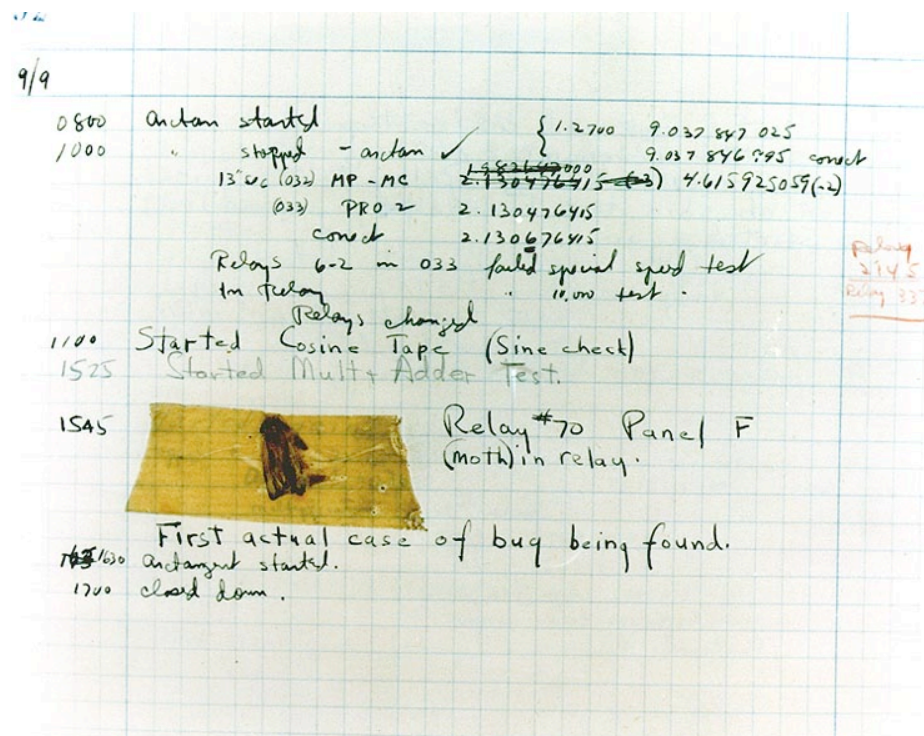 9/9
0800 arctan started { 1.2700 9.037 847 025
1000 " stopped - arctan ✓ 9.037 846 995 correct
13"sec (032) MP - MC 2.130476415 (-3) 4.615925059(-2)
(033) PRO 2 2.130476415
correct 2.130676415
Relays 6-2 in 033 failed special speed test
In relay " 10.000 test .
Relays changed
1100 Started Cosine Tape (Sine check)
1525 Started Mult + Adder Test.
1545 Relay #70 Panel F
(moth) in relay.
First actual case of bug being found.
1630 arctangent started.
1700 closed down.
Relay
2145
Relay 33